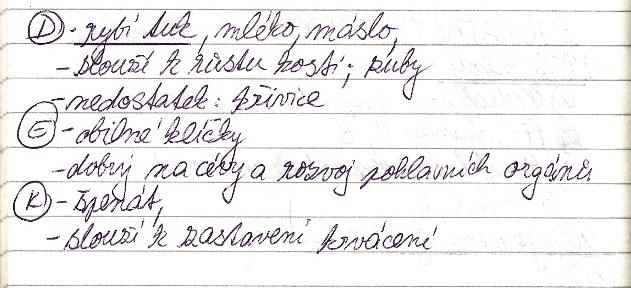 D - rybí tuk, mléko, máslo,
- slouží k růstu kostí; zuby
- nedostatek: křivice
E - obilné klíčky
- dobrý na cévy a rozvoj pohlavních orgánů
K - špenát,
- slouží k zastavení krvácení